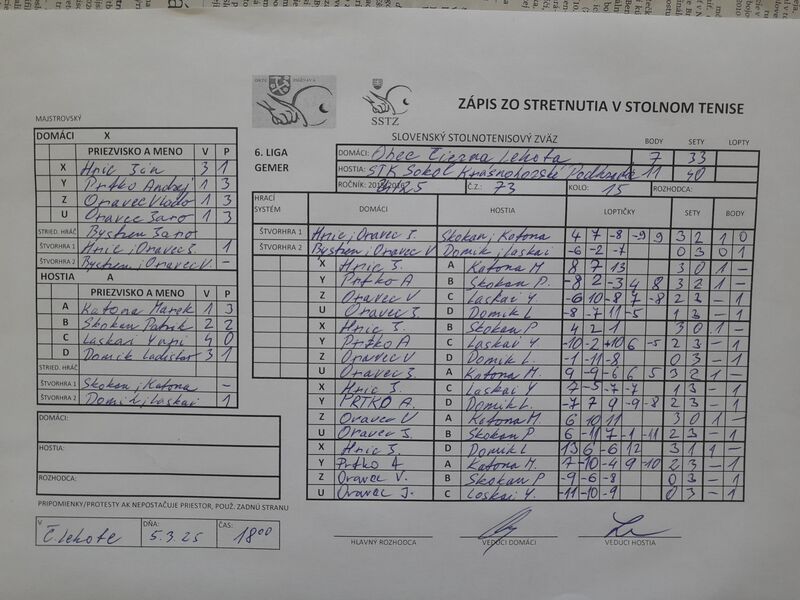 ZÁPIS ZO STRETNUTIA V STOLNOM TENISE
SSTZ
MAJSTROVSKÝ
SLOVENSKÝ STOLNOTENISOVÝ ZVÄZ
BODY SETY LOPTY
6. LIGA
GEMER
DOMÁCI: Obec Čierna Lehota 7 33
HOSTIA: STK Sokol Krasnohorské Podhradie 11 40
ROČNÍK: Č.Z.: 73 KOLO: 15 ROZHODCA:
DOMÁCI X
PRIEZVISKO A MENO V P
X Hric Ján 3 1
Y Prtko Andrej 1 3
Z Oravec Vlado 1 3
U Oravec Jaro 1 3
STRIED. HRÁČ Bystren Jano
ŠTVORHRA 1 Hric, Oravec J. 1
ŠTVORHRA 2 Bystren, Oravec V. -
HOSTIA A
PRIEZVISKO A MENO V P
A Katona Marek 1 3
B Skokan Patrik 2 2
C Laskai Yuri 4 0
D Domik Ladislav 3 1
STRIED. HRÁČ
ŠTVORHRA 1 Skokan, Katona -
ŠTVORHRA 2 Domik, Laskai 1
HRACÍ SYSTÉM DOMÁCI HOSTIA LOPTIČKY SETY BODY
ŠTVORHRA 1 Hric, Oravec J. Skokan, Katona 4 7 -8 -9 9 3 2 1 0
ŠTVORHRA 2 Bystren, Oravec V Domik, Laskai -6 -2 -7 0 3 0 1
X Hric J. A Katona M 8 7 13 3 0 1 -
Y Prtko A B Skokan P. -8 2 -3 4 8 3 2 1 -
Z Oravec V C Laskai Y. -6 10 -8 7 -8 2 3 - 1
U Oravec J. D Domik L 8 -7 11 -5 1 3 - 1
X Hric J. B Skokan P. 4 2 1 3 0 1 -
Y Prtko A C Laskai Y -10 -2 +10 6 -5 2 3 - 1
Z Oravec V D Domik L. -1 -11 -8 0 3 - 1
U Oravec J. A Katona M 9 -9 -6 6 5 3 2 1 -
X Hric J. C Laskai Y 7 -5 -7 -7 1 3 - 1
Y PRTKO A. D Domik L. -7 7 9 -9 -8 2 3 - 1
Z Oravec V A Katona M. 6 10 11 3 0 1 -
U Oravec J. B Skokan P. 6 -11 7 -1 -11 2 3 - 1
X Hric J. D Domik L 13 6 -6 12 3 1 1 -
Y Prtko A A Katona M. 7 -10 -4 9 -10 2 3 - 1
Z Oravec V. B Skokan P -9 -6 -8 0 3 - 1
U Oravec J. C Laskai Y. -11 -10 -9 0 3 - 1
DOMÁCI:
HOSTIA:
ROZHODCA:
PRIPOMIENKY/PROTESTY AK NEPOSTAČUJE PRIESTOR, POUŽ. ZADNÚ STRANU
V Č. Lehote DŇA: 5.3.25 ČAS: 18 00
HLAVNÝ ROZHODCA VEDÚCI DOMÁCI VEDÚCI HOSTIA